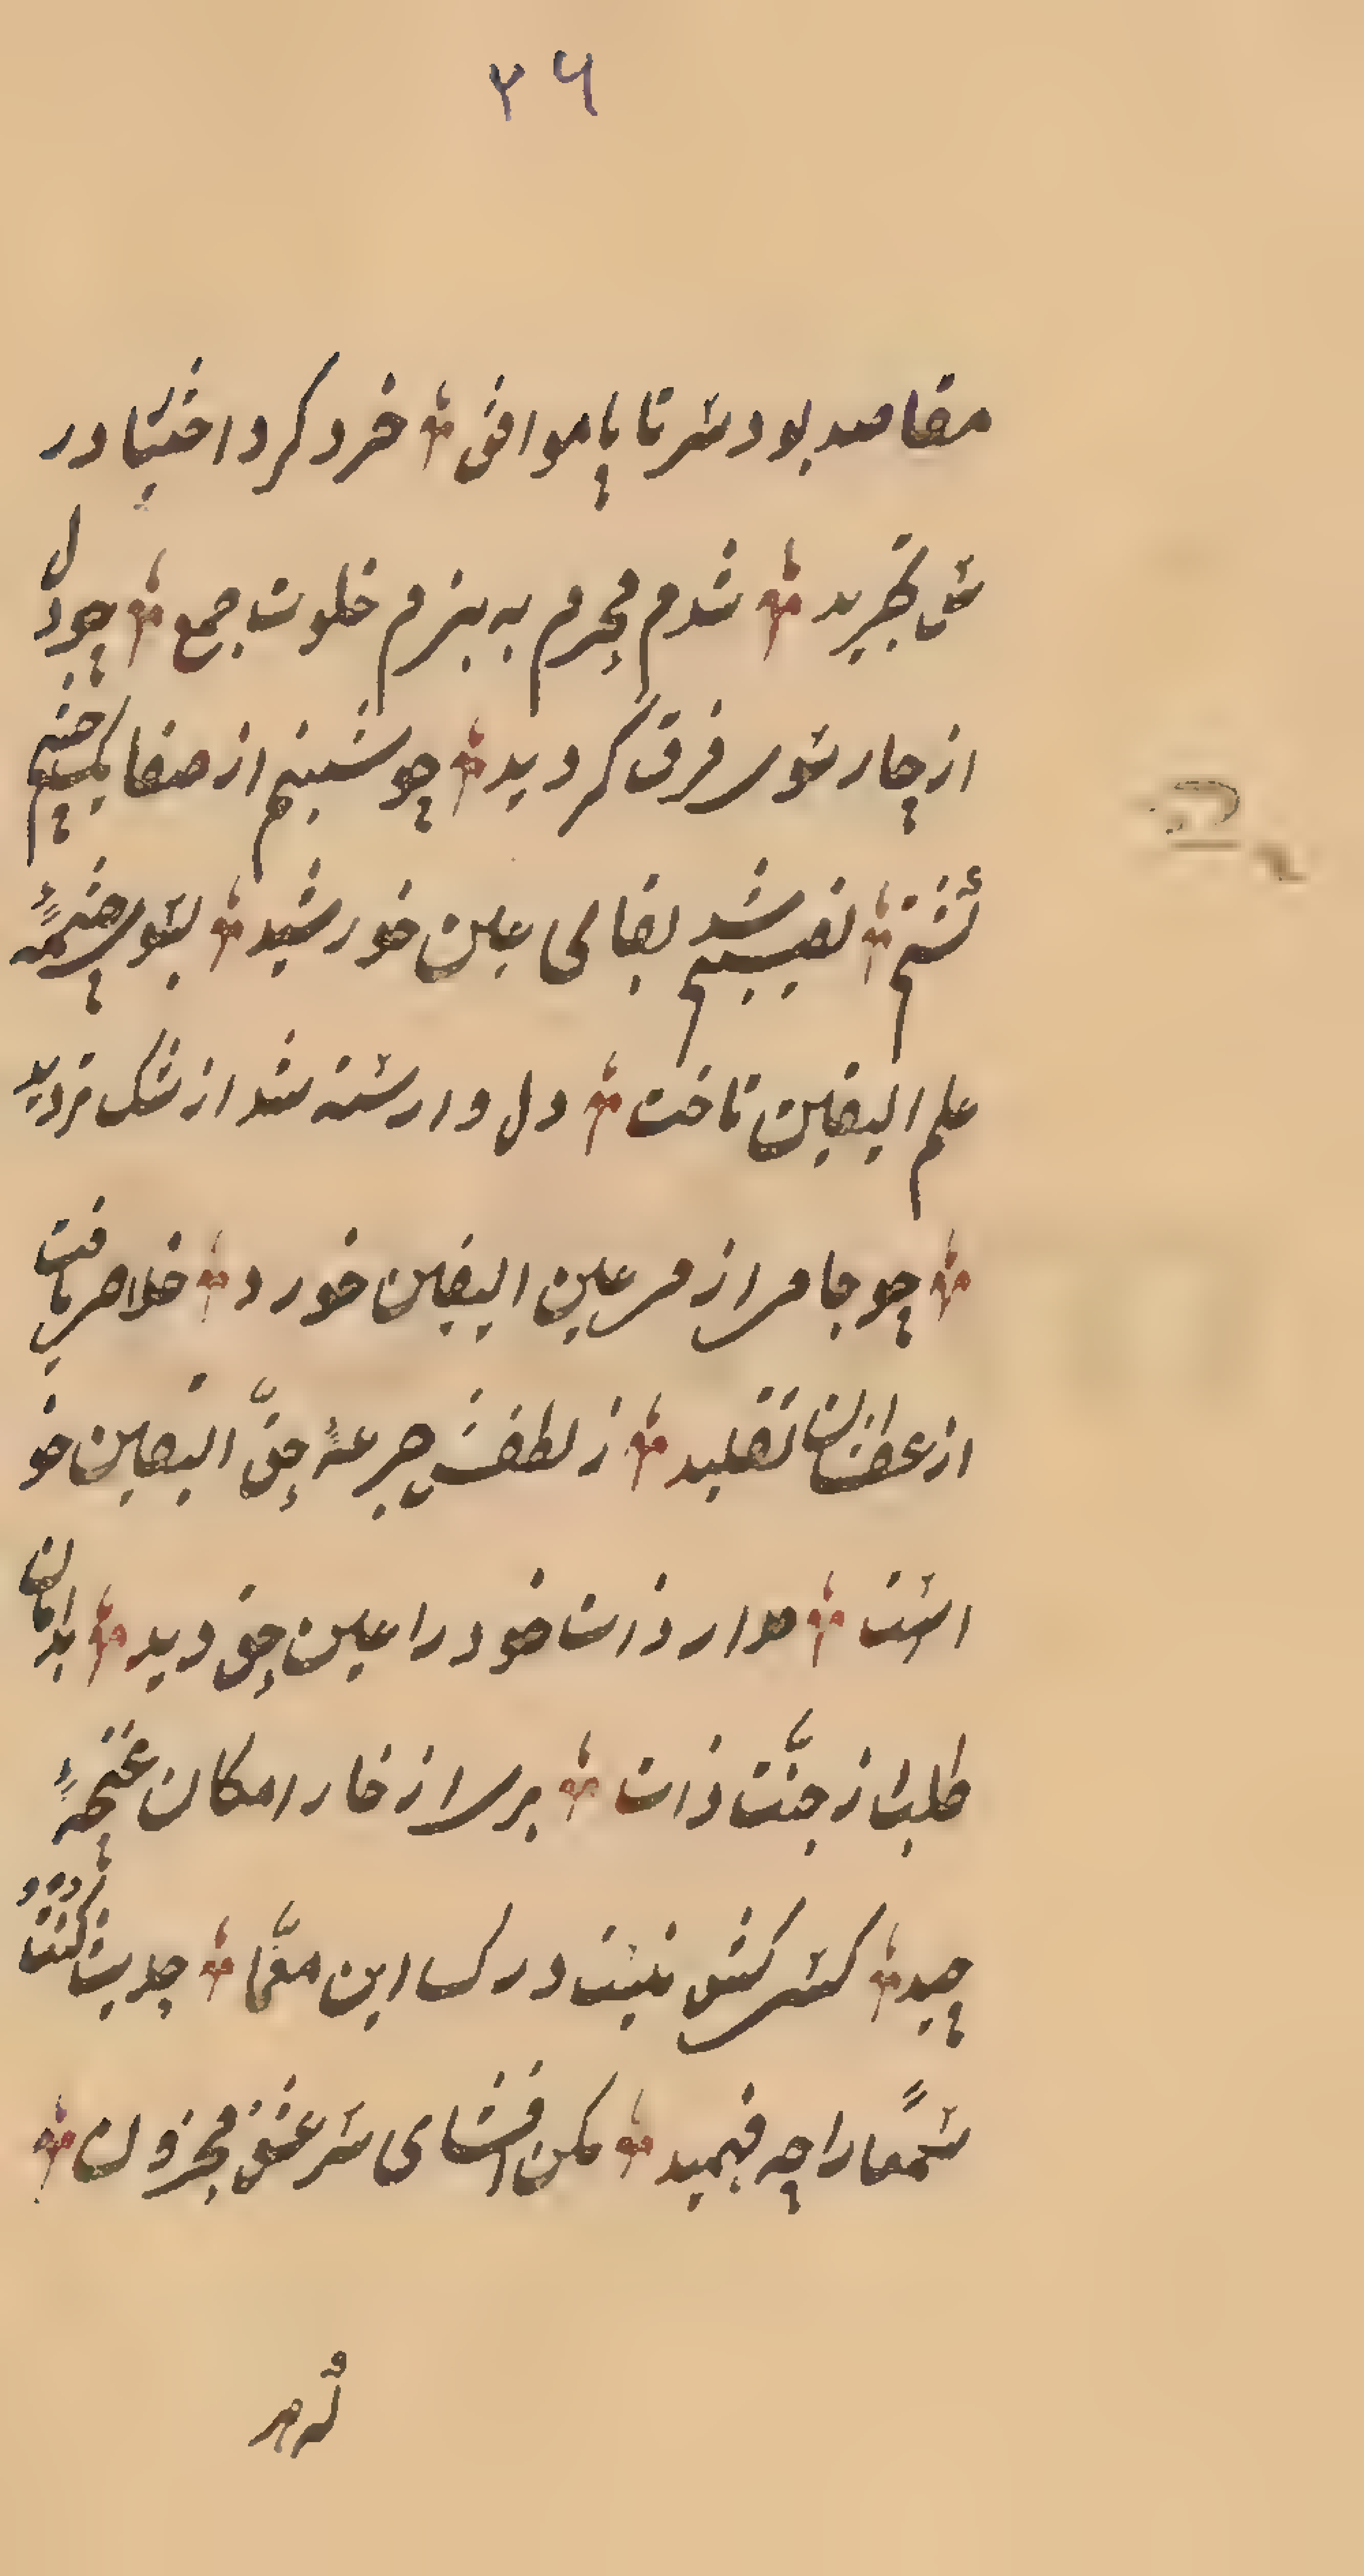 ۲۶
مقاصد بود سر تا پا موافق خرد کرد اختیا در
سی تجرید شدم محرم به بزم خلوت جمع چو دل
از چار سوی فرق کردید چو شبنم از صفا یکچشم
نصیبم شد بقای عین خورشید بسوی چشمهٔ
علم الیقین تاخت دل وارسته شد از شک تردید
چو جامی از می عین الیقین خورد خلاصی یافت
از عطشان تقلید ز لطفش جرعهٔ حق الیقین خو
است مدار ذات خود را عین حق دید بدامان
طلب از جنّت ذات بری از خار امکان غنچهٔ
چید کسر کش نیست درک این معمّا حدیث کنت
سمعا را چه فهمید مکن افشای سر عشق محزون